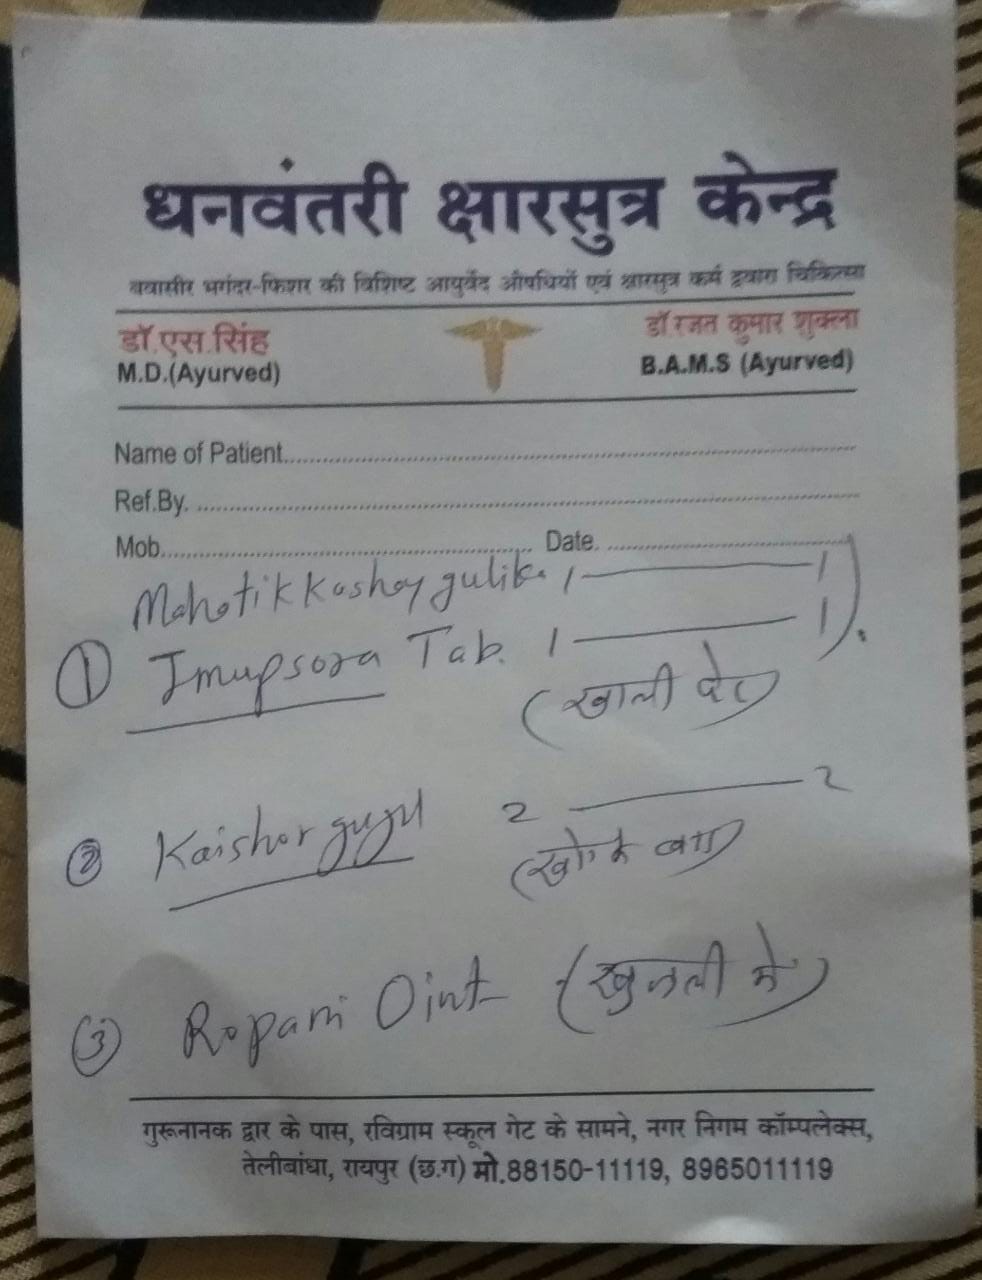 धनवंतरी क्षारसुत्र केन्द्र
बवासीर भगंदर-फिशर की विशिष्ट आयुर्वेद औषधियों एवं क्षारसुत्र कर्म द्वारा चिकित्सा
डॉ.एस.सिंह
M.D.(Ayurved)
डॉ रजत कुमार शुक्ला
B.A.M.S (Ayurved)
Name of Patient
Ref.By.
Mob. Date.
Mahatik Kashay gulika 1 — 1
① Imupsora Tab. 1 — 1
(खाली पेट)
② Kaishor gugul 2 — 2
(खाने के बाद)
③ Ropani Oint (खुजली में)
गुरूनानक द्वार के पास, रविग्राम स्कूल गेट के सामने, नगर निगम कॉम्पलेक्स,
तेलीबांधा, रायपुर (छ.ग) मो.88150-11119, 8965011119